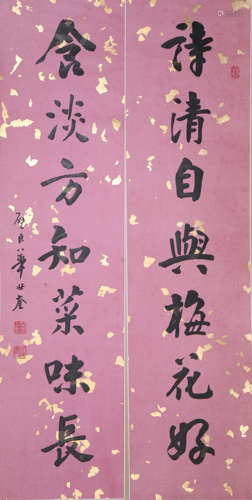 詩清自與梅花好
含淡方知菜味長
華世奎